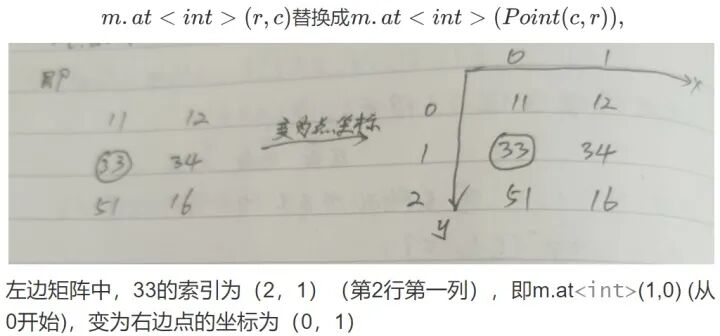 m.at < int > (r, c)替换成m.at < int > (Point(c, r)),
即
0 1 x
11 12 变为点坐标 0 11 12
33 34 1 33 34
51 16 2 51 16
y
左边矩阵中，33的索引为（2，1）（第2行第一列），即m.at<int>(1,0) (从
0开始)，变为右边点的坐标为（0，1）